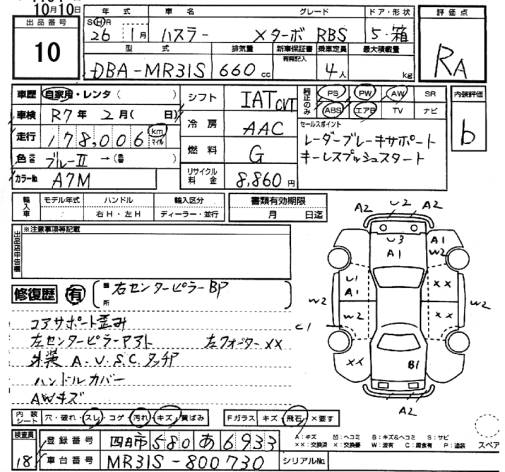 10月10日
出品番号
10
年式 車名 グレード ドア・形状
S H R
26年 1月 ハスラー XターボRBS 5・箱
型式 排気量 新車保証書 乗車定員 最大積載量
有無記入
DBA-MR31S 660cc 4人 kg
評価点
RA
内装評価
b
車歴 自家用・レンタ( )
車検 R7年 2月( 日)
走行 178,006 km マイル
色 ブルーII →( )
カラーNo. A7M
シフト IAT CVT
冷房 AAC
燃料 G
リサイクル料金 8,860円
純正のみ
PS PW AW SR
ABS エアB TV ナビ
セールスポイント
レーダーブレーキサポート
キーレスプッシュスタート
輸入車 モデル年式 ハンドル 輸入区分
年 右H・左H ディーラー・並行
書類有効期限
月 日迄
※注意事項等記載
修復歴 有
右センターピラーBP
コアサポート歪み
左センターピラーアスト 左フェンダーXX
外装 A.U.S.C.タッチP
ハンドルカバー
AWキズ
A2 U2 A2
U3
A1
A1
W2
U1
A1
W2
XX
W2
W2
C1
XX
XX
B1
A2 A2
内装シート 穴・破れ・スレ コゲ 汚れ キズ 黄ばみ
Fガラス キズ 飛石 X要す
検査員
18
登録番号 四日市580あ6933
車台番号 MR31S-800730
シリアルNo.
スペア